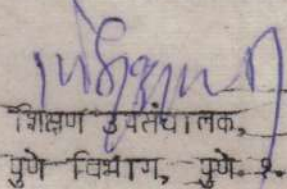 शिक्षण उपसंचालक,
पुणे विभाग, पुणे. १.